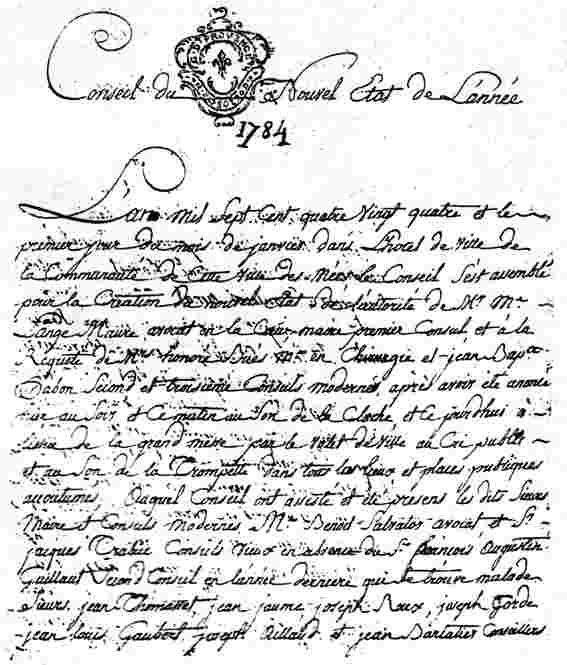 Conseil du Nouvel Etat de L'année
1784
L'an mil sept cent quatre vingt quatre et le
premier jour du mois de janvier dans L'hotel de ville de
la Communauté de Cette Ville des Mées Le Conseil S'est assemblé
pour la Creation du nouvel Etat de l'autorité de Mr. Me.
Ange Maire avocat en la Cour maire premier Consul et à la
Requette de Mrs honoré Me. en Chirurgie et jean Bapte.
Dabon Second et troisieme Consuls modernes après avoir eté
au Soir et Ce matin au Son de la Cloche et Ce jourdhui a
de la grand messe par le Valet de Ville au Cri public
et au Son de la Trompette dans tous les lieux et places publiques
accoutumés. Auquel Conseil ont assisté et été présens les dits Sieurs
Maire et Consuls Modernes Me. Benoit Salvator avocat et Sr.
jacques Trabuc Consuls Vieux en absence du Sr. françois Augustin
Gaillaud Second Consul en l'année derniere qui se trouve malade
Sieurs jean Thomasset, jean jaume, joseph Roux, joseph Gorde
jean louis Gaubert, joseph Aillaud et jean Bartalier Conseillers